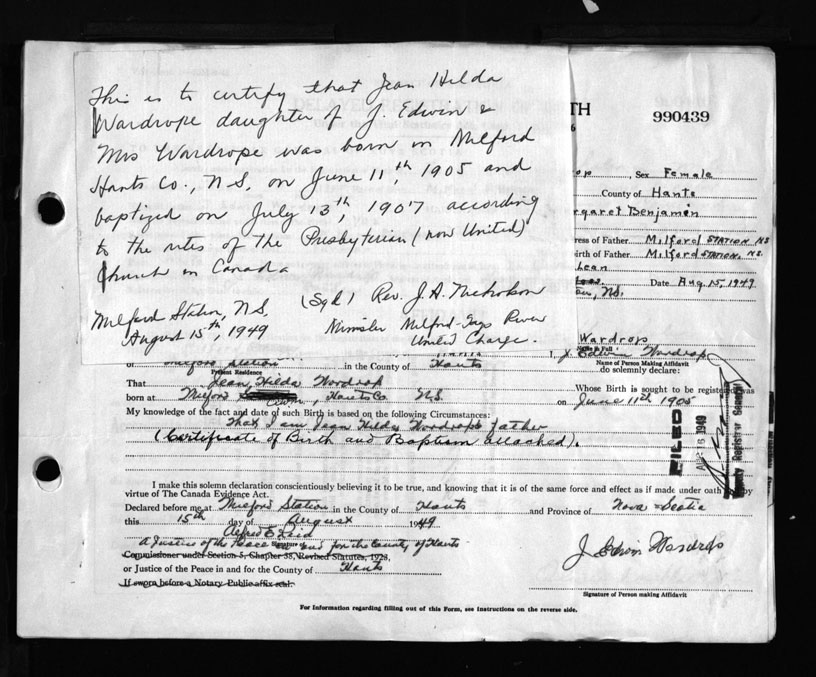 This is to certify that Jean Hilda
Wardrope daughter of J. Edwin &
Mrs Wardrope was born in Milford
Hants Co., N.S. on June 11th, 1905 and
baptized on July 13th, 1907 according
to the rites of the Presbyterian (now United)
Church in Canada
Milford Station, N.S. (Sgd) Rev. J. A. Nicholson
August 15th, 1949 Minister Milford-Gays River
United Charge.
TH
990439
op, Sex Female
County of Hants
rgaret Benjamin
ress of Father Milford STATION N.S
irth of Father Milford STATION, N.S.
Lean
Date Aug 15, 1949
, N.S.
Wardrop
Name in Full
of Milford Station in the County of Hants I, J. Edwin Wardrop
Person Residence Name of Person Making Affidavit
do solemnly declare:
That Jean Hilda Wardrop Whose Birth is sought to be registered was
born at Milford, Hants Co. N.S. on June 11th 1905
My knowledge of the fact and date of such Birth is based on the following Circumstances:
That I am Jean Hilda Wardrop's father
(Certificate of Birth and Baptism attached).
FILED
1949
Registrar General
I make this solemn declaration conscientiously believing it to be true, and knowing that it is of the same force and effect as if made under oath by
virtue of The Canada Evidence Act.
Declared before me at Milford Station in the County of Hants and Province of Nova Scotia
this 15th day of August 1949
Signature of
A Justice of the Peace in and for the County of Hants
Commissioner under Section 5, Chapter 38, Revised Statutes, 1923,
or Justice of the Peace in and for the County of Hants
If sworn before a Notary Public affix seal.
J Edwin Wardrop
Signature of Person making Affidavit
For Information regarding filling out of this Form, see Instructions on the reverse side.